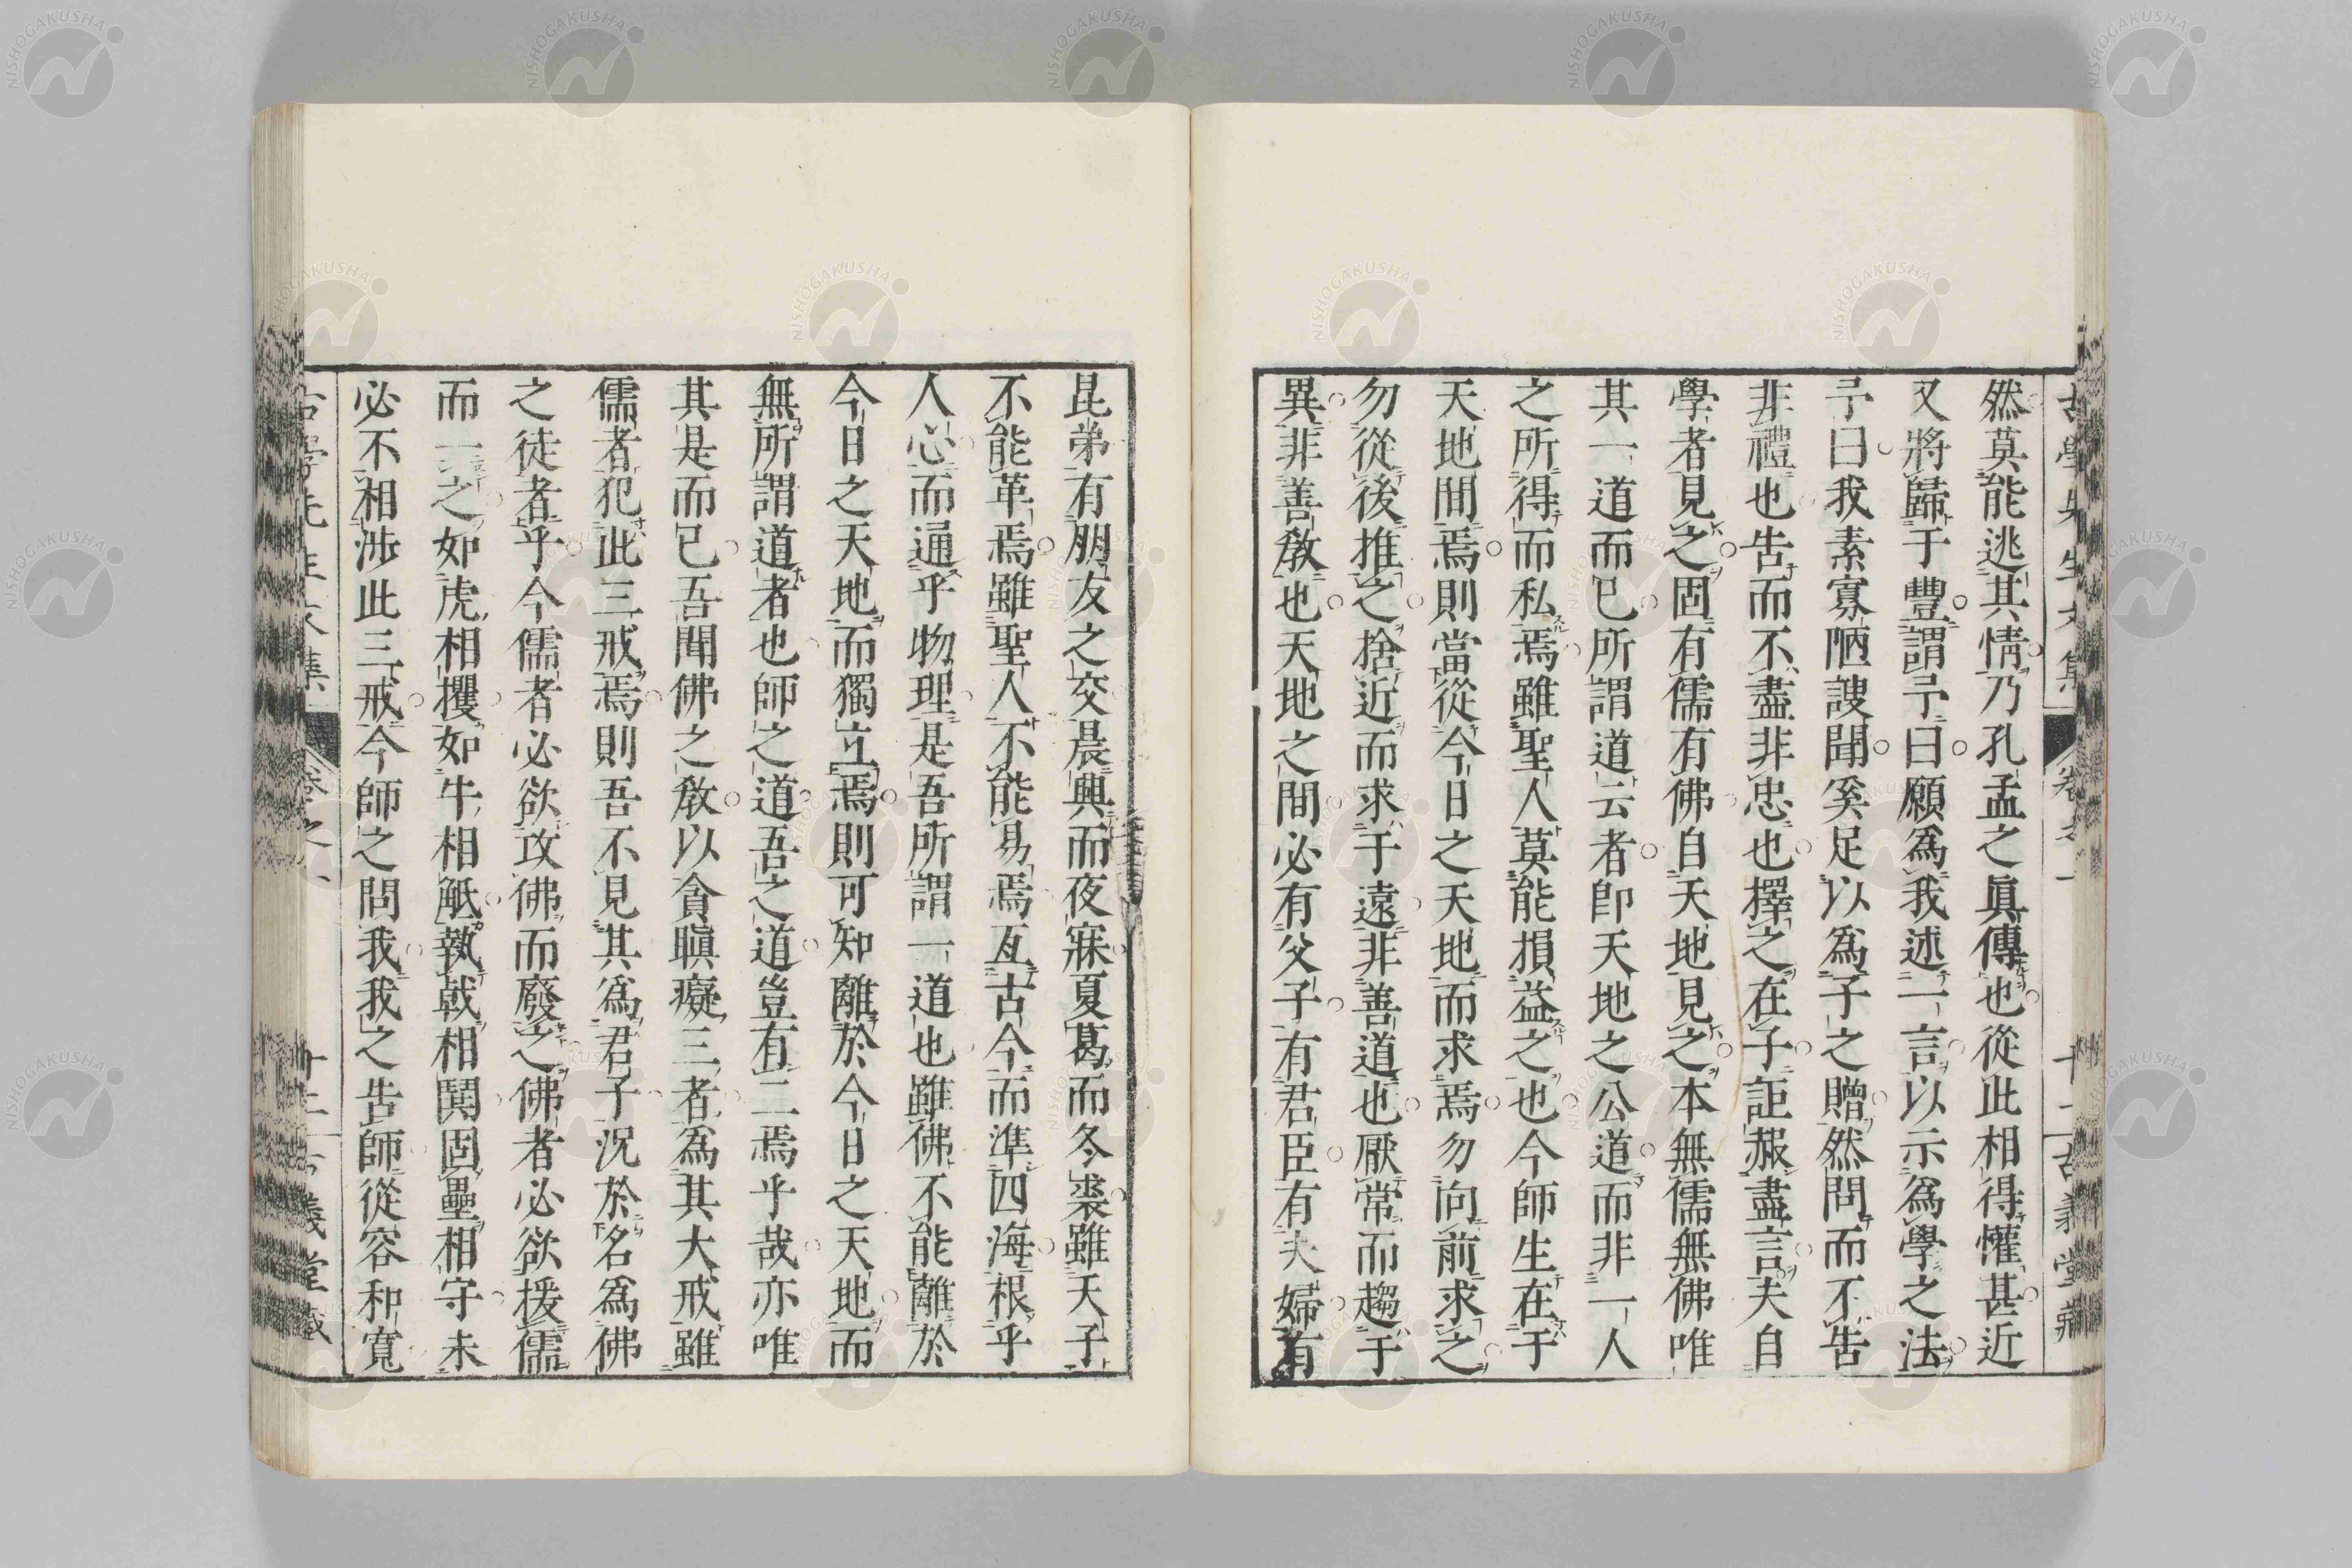 然莫能逃其情乃孔孟之眞傳也從此相得懽甚近
又將歸于豐謂予曰願爲我述一言以示爲學之法
予曰我素寡陋謏聞奚足以爲子之贈然問而不告
非禮也告而不盡非忠也擇之在子詎赧盡言夫自
學者見之固有儒有佛自天地見之本無儒無佛唯
其一道而已所謂道云者卽天地之公道而非一人
之所得而私焉雖聖人莫能損益之也今師生在于
天地間焉則當從今日之天地而求焉勿向前求之
勿從後推之捨近而求于遠非善道也厭常而趨于
異非善敎也天地之間必有父子有君臣有夫婦有
昆弟有朋友之交晨興而夜寐夏葛而冬裘雖天子
不能革焉雖聖人不能易焉亙古今而準四海根乎
人心而通乎物理是吾所謂一道也雖佛不能離於
今日之天地而獨立焉則可知離於今日之天地而
無所謂道者也師之道吾之道豈有二焉乎哉亦唯
其是而已吾聞佛之敎以貪瞋癡三者爲其大戒雖
儒者犯此三戒焉則吾不見其爲君子況於名爲佛
之徒者乎今儒者必欲攻佛而廢之佛者必欲援儒
而一之如虎相攫如牛相觝執戟相鬨固壘相守未
必不相涉此三戒今師之問我我之告師從容和寬
古學先生文集
卷之一
十二
古義堂藏
NISHOGAKUSHA